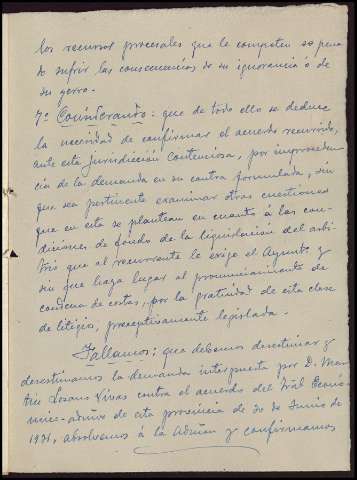 los recursos procesales que le competen so pena
de sufrir las consecuencias de su ignorancia ó de
su yerro.
7º Considerando: que de todo ello se deduce
la necesidad de confirmar el acuerdo recurrido,
ante esta Jurisdicción Contenciosa, por improceden-
cia de la demanda en su contra formulada, sin
que sea pertinente examinar otras cuestiones
que en esta se plantean en cuanto á las con-
diciones de fondo de la liquidación del arbi-
trio que al recurrente le exige el Ayunto y
sin que haya lugar al pronunciamiento de
condena de costas, por la gratuidad de esta clase
de litigio, preceptivamente legislada.
Fallamos: que debemos desestimar y
desestimamos la demanda interpuesta por D. Ma
trio Lozano Vivas contra el acuerdo del Tral Econó
mico-admvo de esta provincia de 30 de Junio de
1971, absolvemos á la Admon y confirmamos